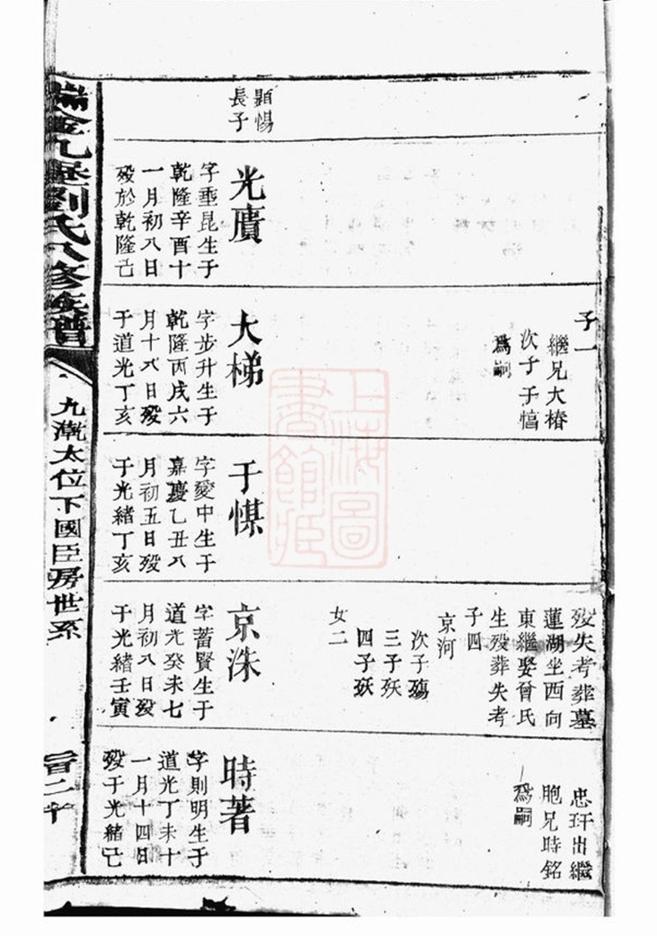 顕惕
長子
光贋
字垂昆生于
乾隆辛酉十
一月初八日
殁於乾隆己
子一
繼兄大椿
次子子愭
爲嗣
大梯
字步升生于
乾隆丙戌六
月十八日殁
于道光丁亥
于惎
字愛中生于
嘉慶乙丑八
月初五日殁
于光緒丁亥
殁失考葬墓
蓮湖坐西向
東繼娶曾氏
生殁葬失考
子四
京河
次子殤
三子殀
四子殀
女二
京洙
字蓄賢生于
道光癸未七
月初八日殁
于光緒壬寅
忠玕出繼
胞兄時銘
爲嗣
時著
字則明生于
道光丁未十
一月十四日
殁于光緒己
瑞金九堡劉氏八修族譜
九瀧太位下國臣房世系